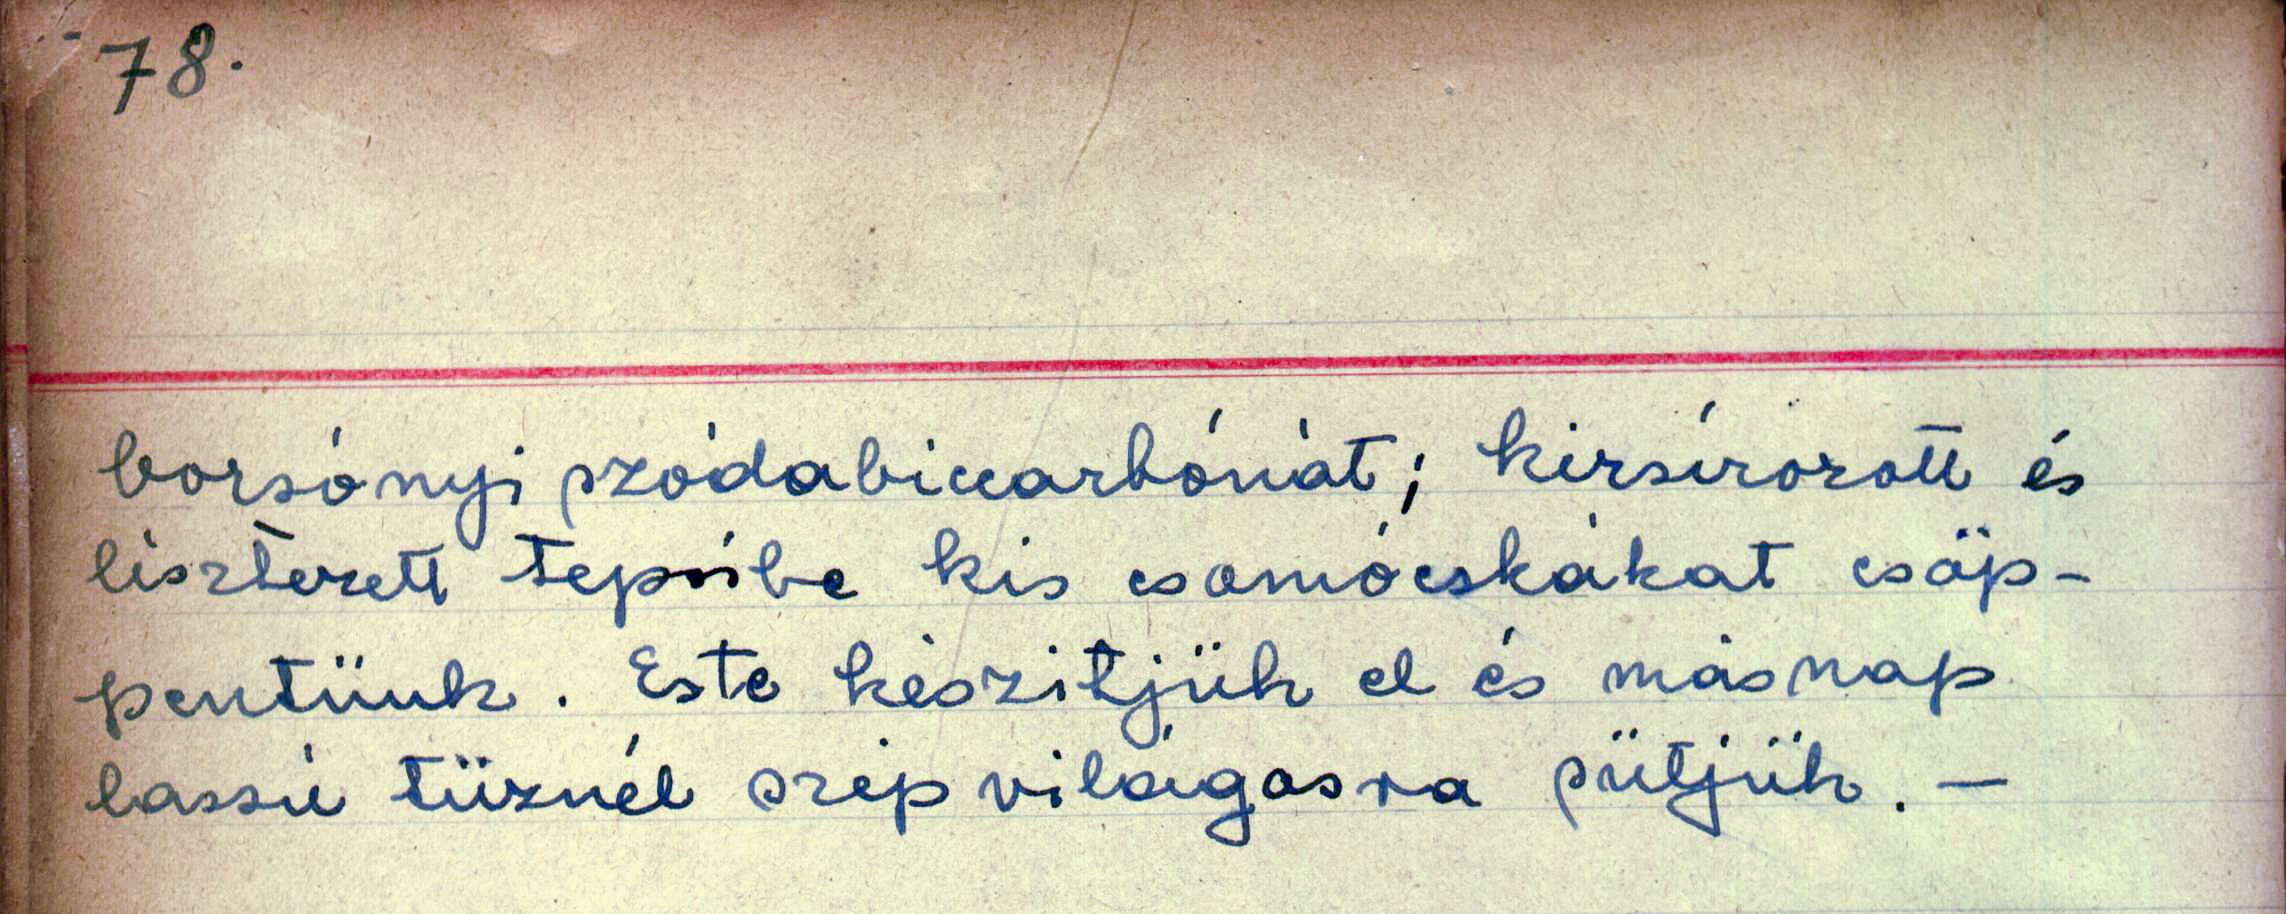 78.
borsónyi szódabiccarbónát; kizsírozott és
lisztezett tepsibe kis csomócskákat csöp-
pentünk. Este készítjük el és másnap
lassú tüznél szép világosra sütjük. —